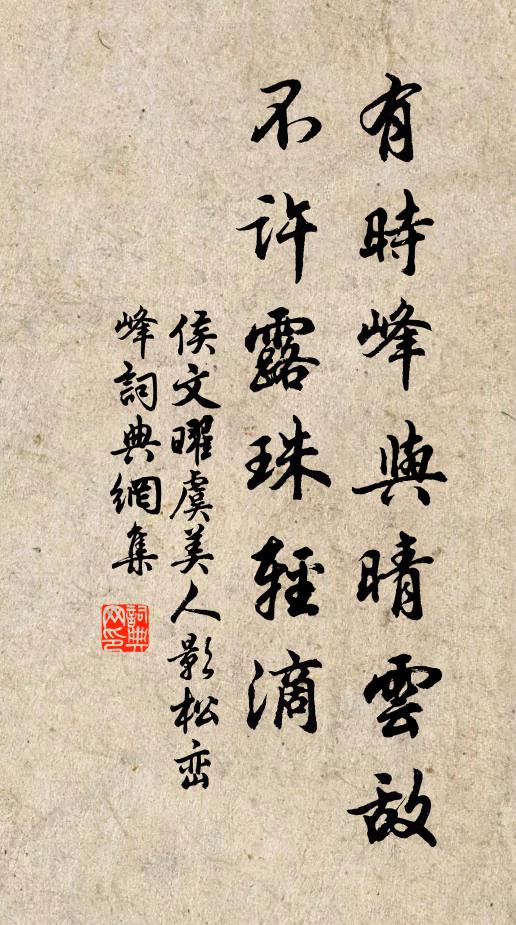 有時峰與晴雲敌
不許露珠輕滴
侯文曜虞美人影松峦
峰詞典網集
詞典网印